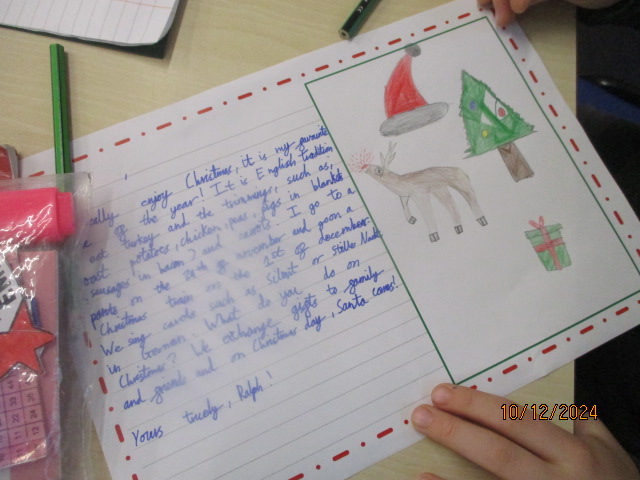 enjoy Christmas, it is my favourite
of the year! It is English tradition
eat turkey and the trimmings, such as,
potatoes, chicken, peas, pigs in blankets
sausages in bacon? and carrots. I go to a
on the 29th of november and goon a
Christmas train on the 1st of december.
We sing carols such as silent or stiller Nacht,
in German. What do you do on
Christmas? We exchange gifts to family
and friends and on Christmas day, Santa comes!
Yours truely, Ralph!
10/12/2024